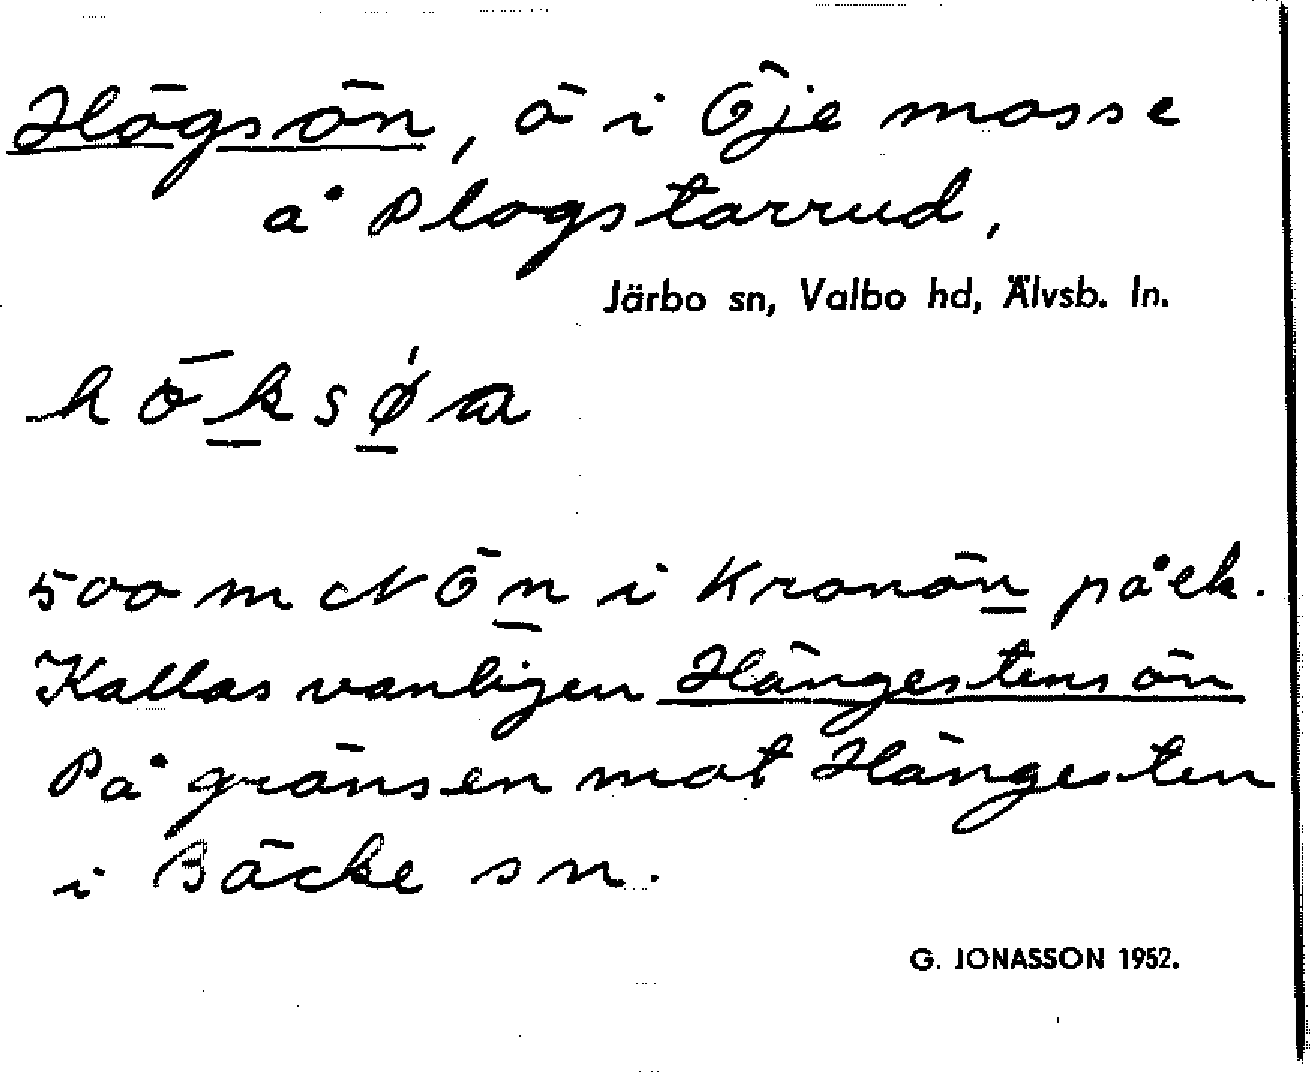 Högsön, ö i Öje mosse
å Plogstarrud,
Järbo sn, Valbo hd, Älvsb. ln.
höksøa
500 m N Ön i Kronön på ek.
Kallas vanligen Hängestensön
På gränsen mot Hängesten
i Bäcke sn.
G. JONASSON 1952.